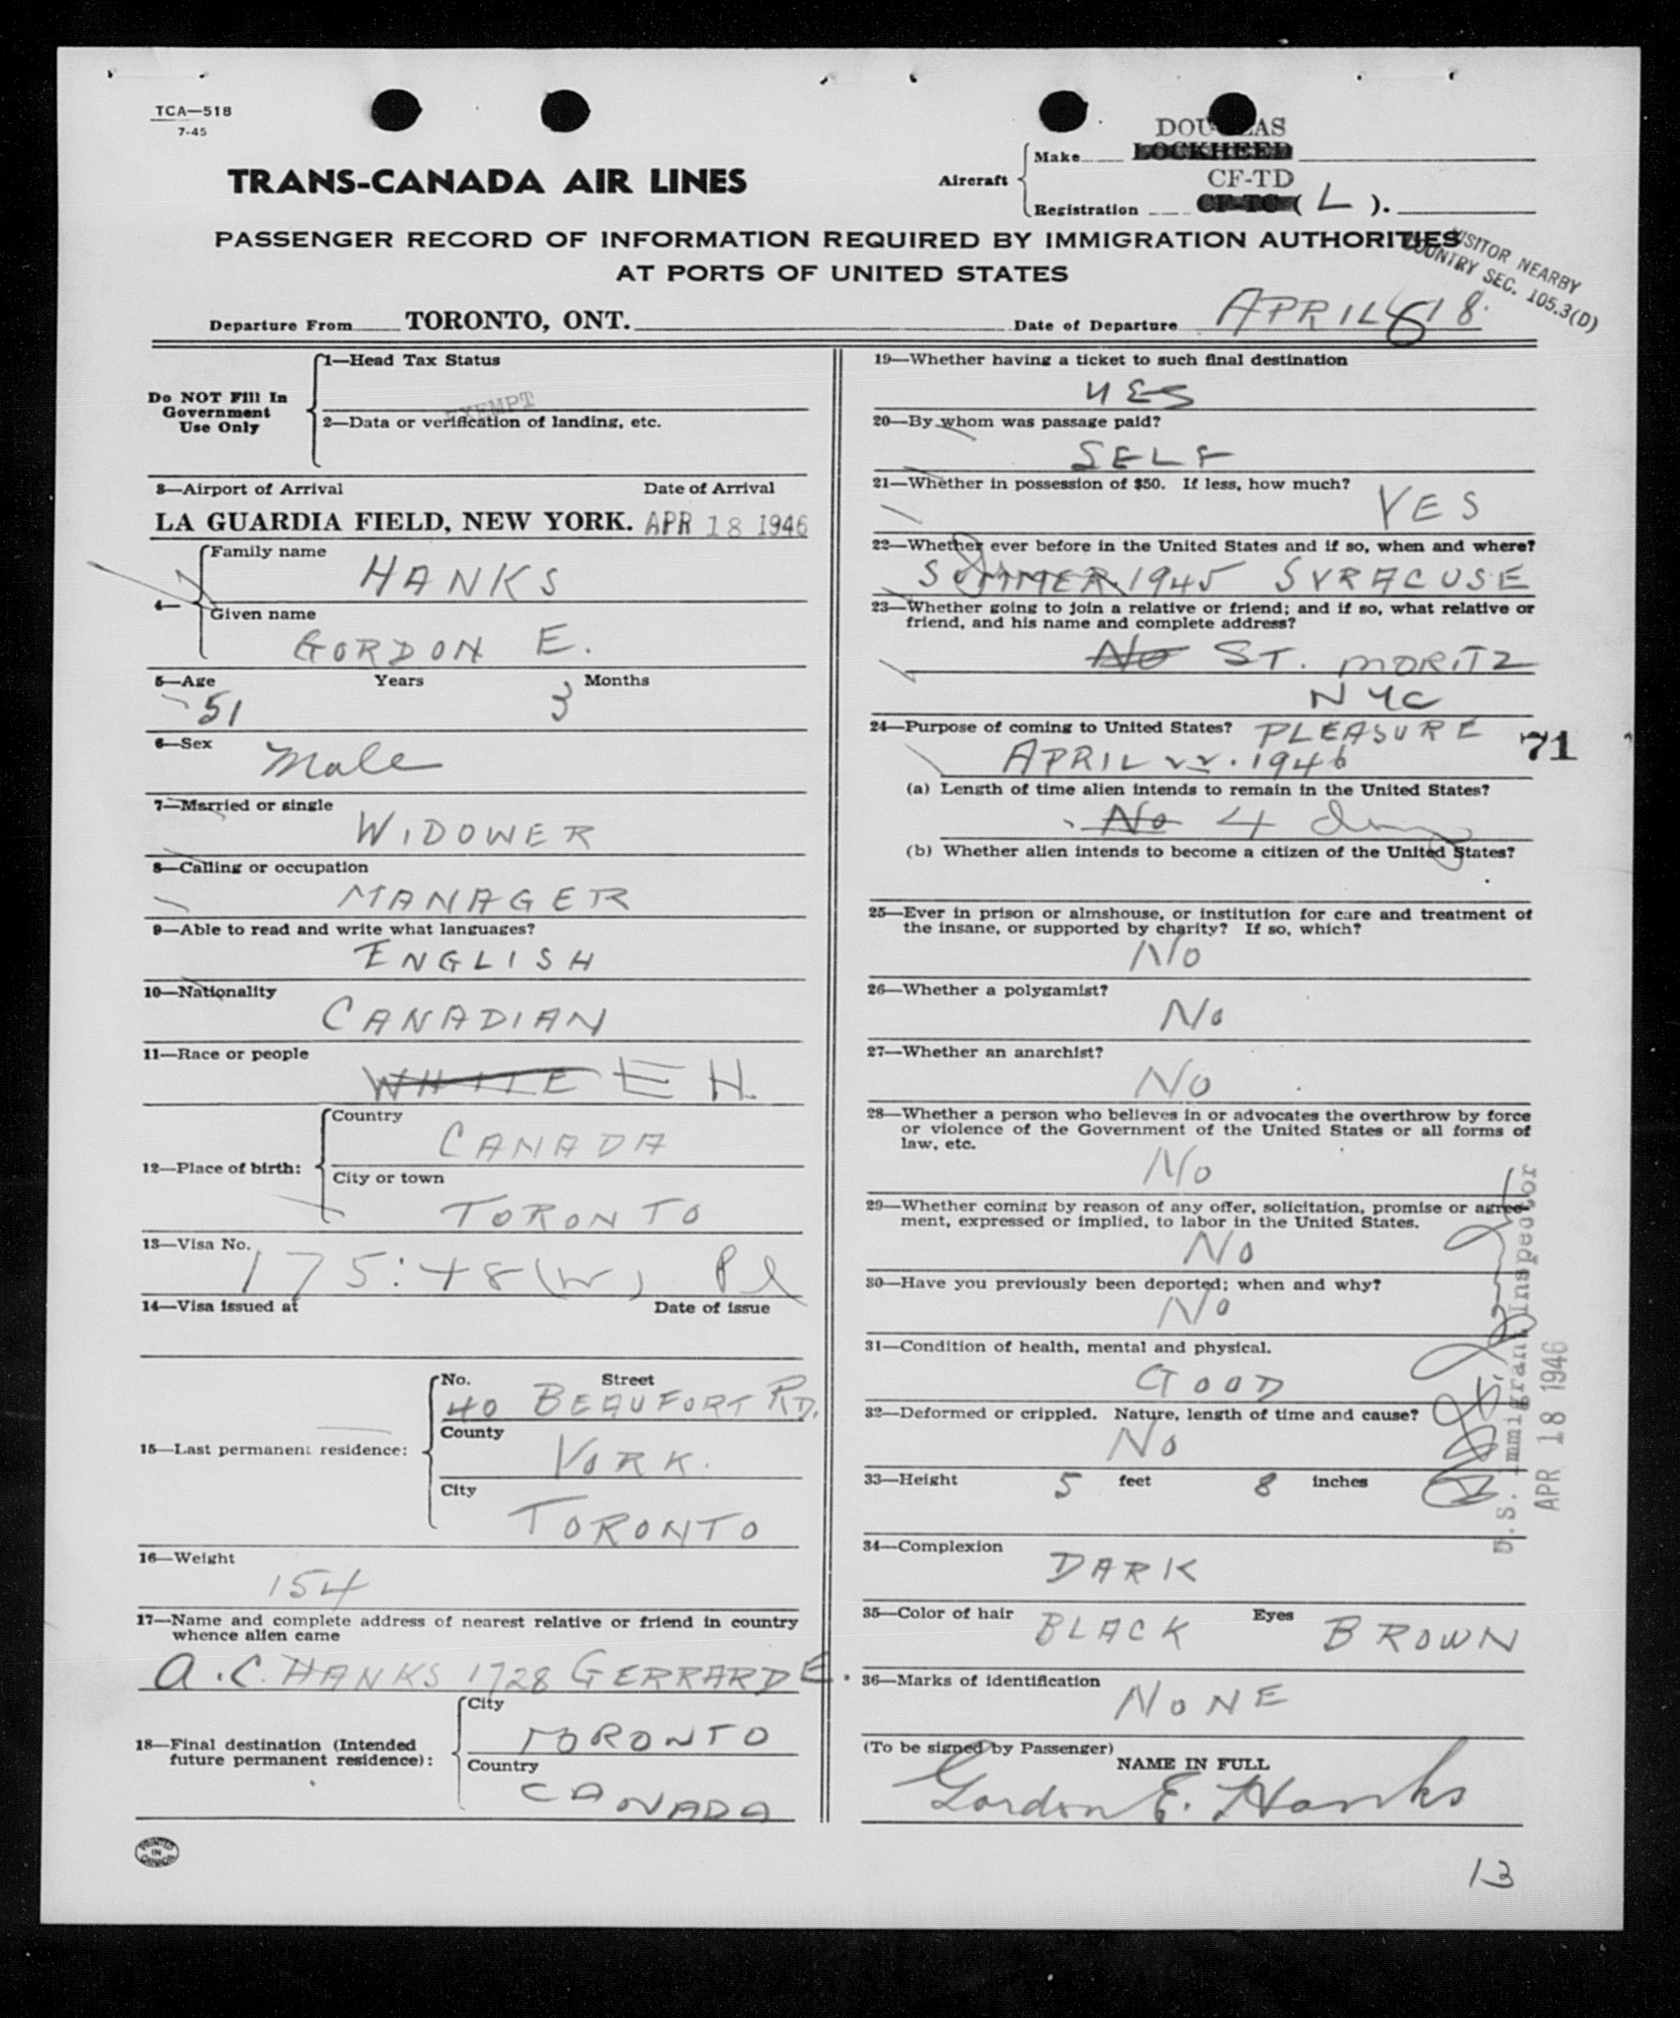 TCA—518
7-45
DOUGLAS
Aircraft
Make LOCKHEED
CF-TD
Registration CF-TC ( L ).
TRANS-CANADA AIR LINES
PASSENGER RECORD OF INFORMATION REQUIRED BY IMMIGRATION AUTHORITIES
AT PORTS OF UNITED STATES
VISITOR NEARBY
COUNTRY SEC. 105.3(D)
Departure From TORONTO, ONT. Date of Departure APRIL 18.
Do NOT Fill In
Government
Use Only
1—Head Tax Status
EXEMPT
2—Data or verification of landing, etc.
3—Airport of Arrival Date of Arrival
LA GUARDIA FIELD, NEW YORK. APR 18 1946
4—
Family name
HANKS
Given name
GORDON E.
5—Age Years Months
51 3
6—Sex
Male
7—Married or single
WIDOWER
8—Calling or occupation
MANAGER
9—Able to read and write what languages?
ENGLISH
10—Nationality
CANADIAN
11—Race or people
WHITE E H.
12—Place of birth:
Country
CANADA
City or town
TORONTO
13—Visa No.
175:48(W)
14—Visa issued at Date of issue
15—Last permanent residence:
No. Street
40 BEAUFORT RD.
County
YORK.
City
TORONTO
16—Weight
154
17—Name and complete address of nearest relative or friend in country
whence alien came
A.C. HANKS 1728 GERRARD E.
18—Final destination (Intended
future permanent residence):
City
TORONTO
Country
CANADA
PRINTED
IN
CANADA
19—Whether having a ticket to such final destination
YES
20—By whom was passage paid?
SELF
21—Whether in possession of $50. If less, how much?
YES
22—Whether ever before in the United States and if so, when and where?
SUMMER 1945 SYRACUSE
23—Whether going to join a relative or friend; and if so, what relative or
friend, and his name and complete address?
No ST. MORITZ
NYC
24—Purpose of coming to United States? PLEASURE
APRIL 22. 1946
71
(a) Length of time alien intends to remain in the United States?
No 4 days
(b) Whether alien intends to become a citizen of the United States?
25—Ever in prison or almshouse, or institution for care and treatment of
the insane, or supported by charity? If so, which?
No
26—Whether a polygamist?
No
27—Whether an anarchist?
No
28—Whether a person who believes in or advocates the overthrow by force
or violence of the Government of the United States or all forms of
law, etc.
No
29—Whether coming by reason of any offer, solicitation, promise or agree-
ment, expressed or implied, to labor in the United States.
No
30—Have you previously been deported; when and why?
No
31—Condition of health, mental and physical.
GOOD
32—Deformed or crippled. Nature, length of time and cause?
No
33—Height 5 feet 8 inches
U.S. Immigrant Inspector
APR 18 1946
34—Complexion
DARK
35—Color of hair BLACK Eyes BROWN
36—Marks of identification
NONE
(To be signed by Passenger)
NAME IN FULL
Gordon E. Hanks
13